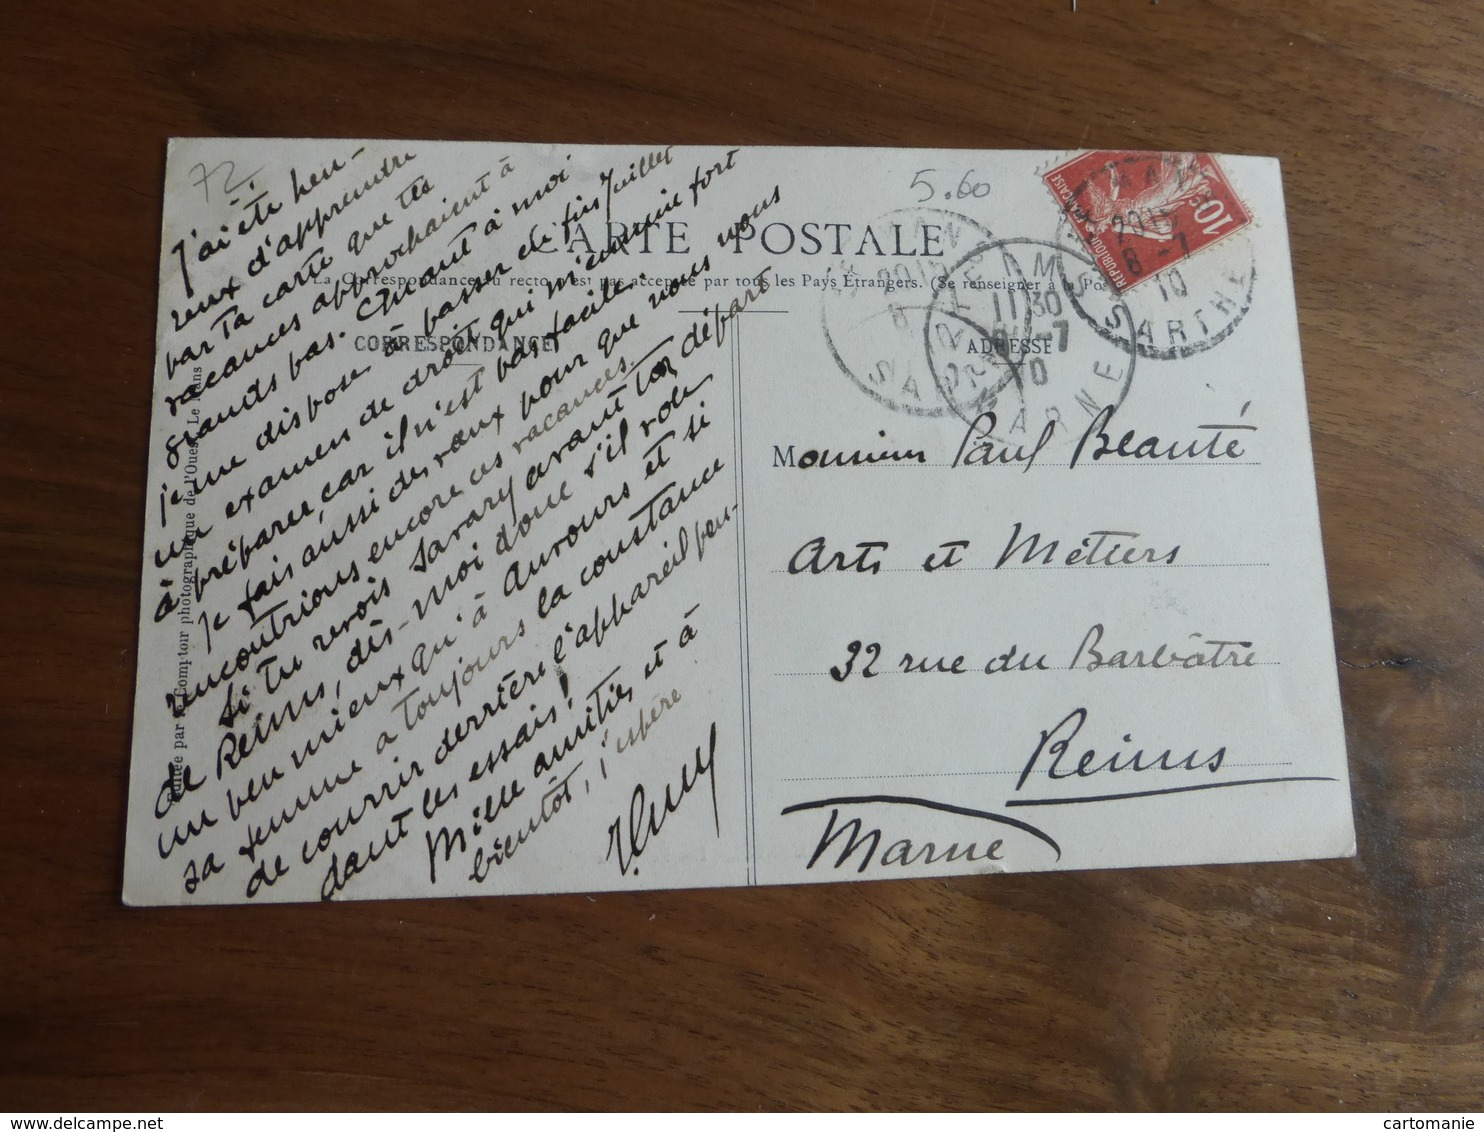 72
5.60
CARTE POSTALE
La Correspondance au recto n'est pas acceptée par tous les Pays Étrangers. (Se renseigner à la Poste
CORRESPONDANCE
ADRESSE
J'ai été heu-
reux d'apprendre
par ta carte que tes
vacances approchaient à
grands pas. Quant à moi
je me dispose à passer de fin Juillet
un examen de droit qui m'ennuie fort
à préparer car il n'est pas facile.
Je fais aussi des vœux pour que nous nous
rencontrions encore ces vacances.
Si tu revois Savary avant ton départ
de Reims, dis-moi donc s'il rode
un peu mieux qu'à Aurours et si
sa femme a toujours la constance
de courrir derrière l'appareil pen-
dant les essais!
Mille amitiés et à
bientôt, j'espère
Éditée par le Comptoir photographique de l'Ouest, Le Mans
Monsieur Paul Beauté
Arts et Métiers
32 rue du Barbâtre
Reims
Marne
RÉPUBLIQUE FRANÇAISE
10c
20 15
8 -7
10
SARTHE
REIMS
11 30
-7
10
MARNE
cartomanie